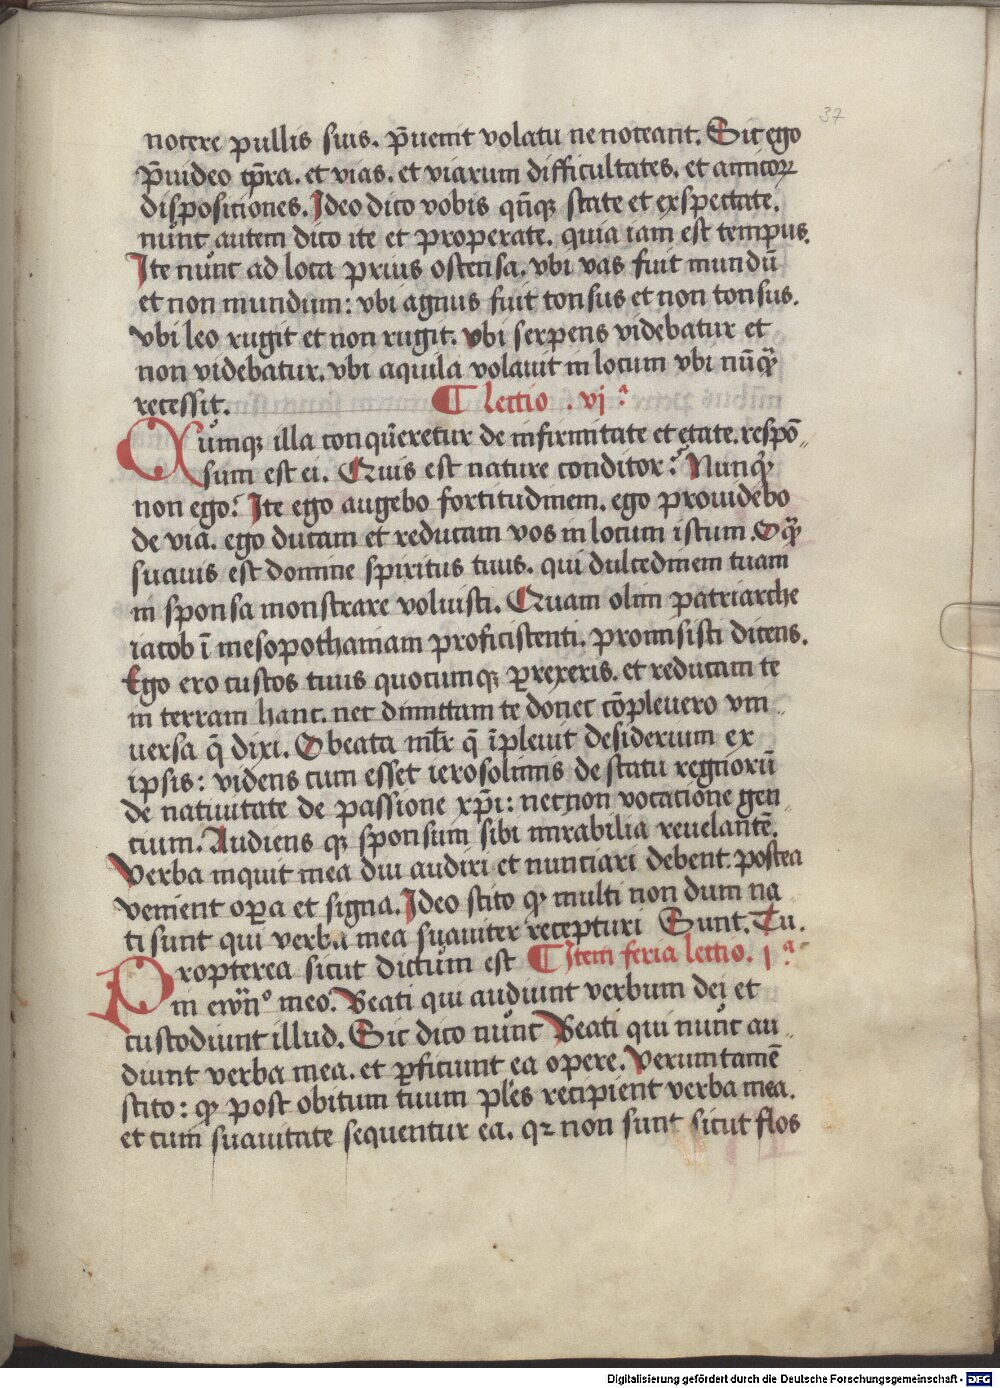 37
nocere pullis suis. p̄uenit volatu ne noceant. Sic ego
p̄uideo tp̄ra. et vias. et viarum difficultates. et amicoꝝ
dispositiones. Ideo dico vobis qn̄qꝫ state et exspectate.
nunc autem dico ite et properate. quia iam est tempus.
Ite nunc ad loca prius ostensa. vbi vas fuit mundū
et non mundum: vbi agnus fuit tonsus et non tonsus.
vbi leo rugit et non rugit. vbi serpens videbatur et
non videbatur. vbi aquila volauit in locum vbi nūqꝫ
recessit. ¶ lectio . vj ᵃ
Cūmqꝫ illa conquereretur de infirmitate et etate. respō
sum est ei. Quis est nature conditor: Nunqꝫ
non ego: Ite ego augebo fortitudinem. ego prouidebo
de via. ego ducam et reducam vos in locum istum. O qꝫ
suauis est domine spiritus tuus. qui dulcedinem tuam
in sponsa monstrare voluisti. Quam olim patriarche
iacob ī mesopothamiam proficiscenti. promisisti dicens.
Ego ero custos tuus quocumqꝫ ꝑrexeris. et reducam te
in terram hanc. nec dimittam te donec cōpleuero vni
uersa q̄ dixi. O beata ml̄r q̄ īpleuit desiderium ex
ipsis: videns cum esset ierosolimis de statu regnorū
de natiuitate de passione xp̄i: necnon vocatione gen
tium. Audiens qꝫ sponsum sibi mirabilia reuelantē.
Verba inquit mea diu audiri et nunciari debent. postea
venient oꝑa et signa. Ideo scito qꝫ multi non dum na
ti sunt qui verba mea suauiter recepturi Sunt. Tu.
Propterea sicut dictum est ¶ Item feria lectio. j ᵃ
in ewn̄º meo. Beati qui audiunt verbum dei et
custodiunt illud. Sic dico nunc Beati qui nunc au
diunt verba mea. et ꝑficiunt ea opere. Verumtamē
scito: qꝫ post obitum tuum pl̄es recipient verba mea.
et cum suauitate sequentur ea. qꝛ non sunt sicut flos
Digitalisierung gefördert durch die Deutsche Forschungsgemeinschaft - DFG